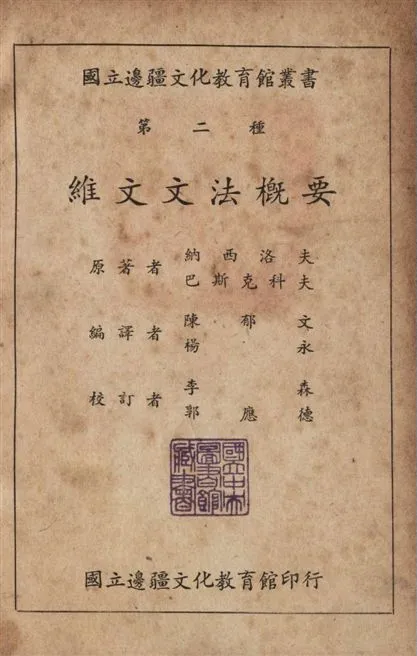 國立邊疆文化教育館叢書
第二種
維文文法概要
原著者 納西洛夫
巴斯克科夫
編譯者 陳郁文
楊永
校訂者 李森
郭應德
國立中央
圖書館
藏書
國立邊疆文化教育館印行